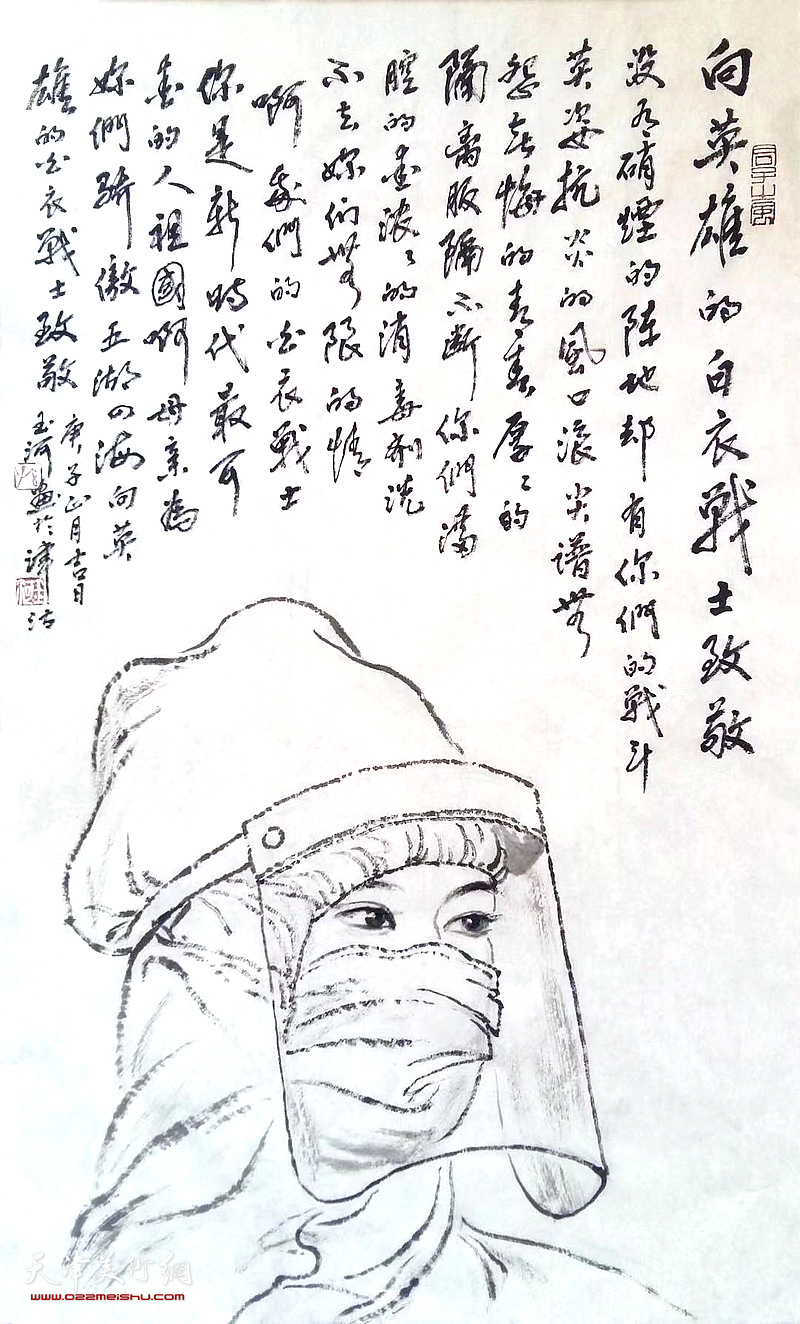 向英雄的白衣戰士致敬
没有硝煙的陣地却有你們的戰斗
英姿抗炎的風口浪尖譜無
怨無悔的青春厚々的
隔离服隔不断你們滿
腔的爱浓々的消毒剂洗
不去你们無限的情
啊我們的白衣戰士
你是新時代最可
爱的人祖國啊母亲為
你們骄傲五湖四海向英
雄的白衣戰士致敬
庚子正月吉日
玉河畫於津沽
天津美术網
www.022meishu.com